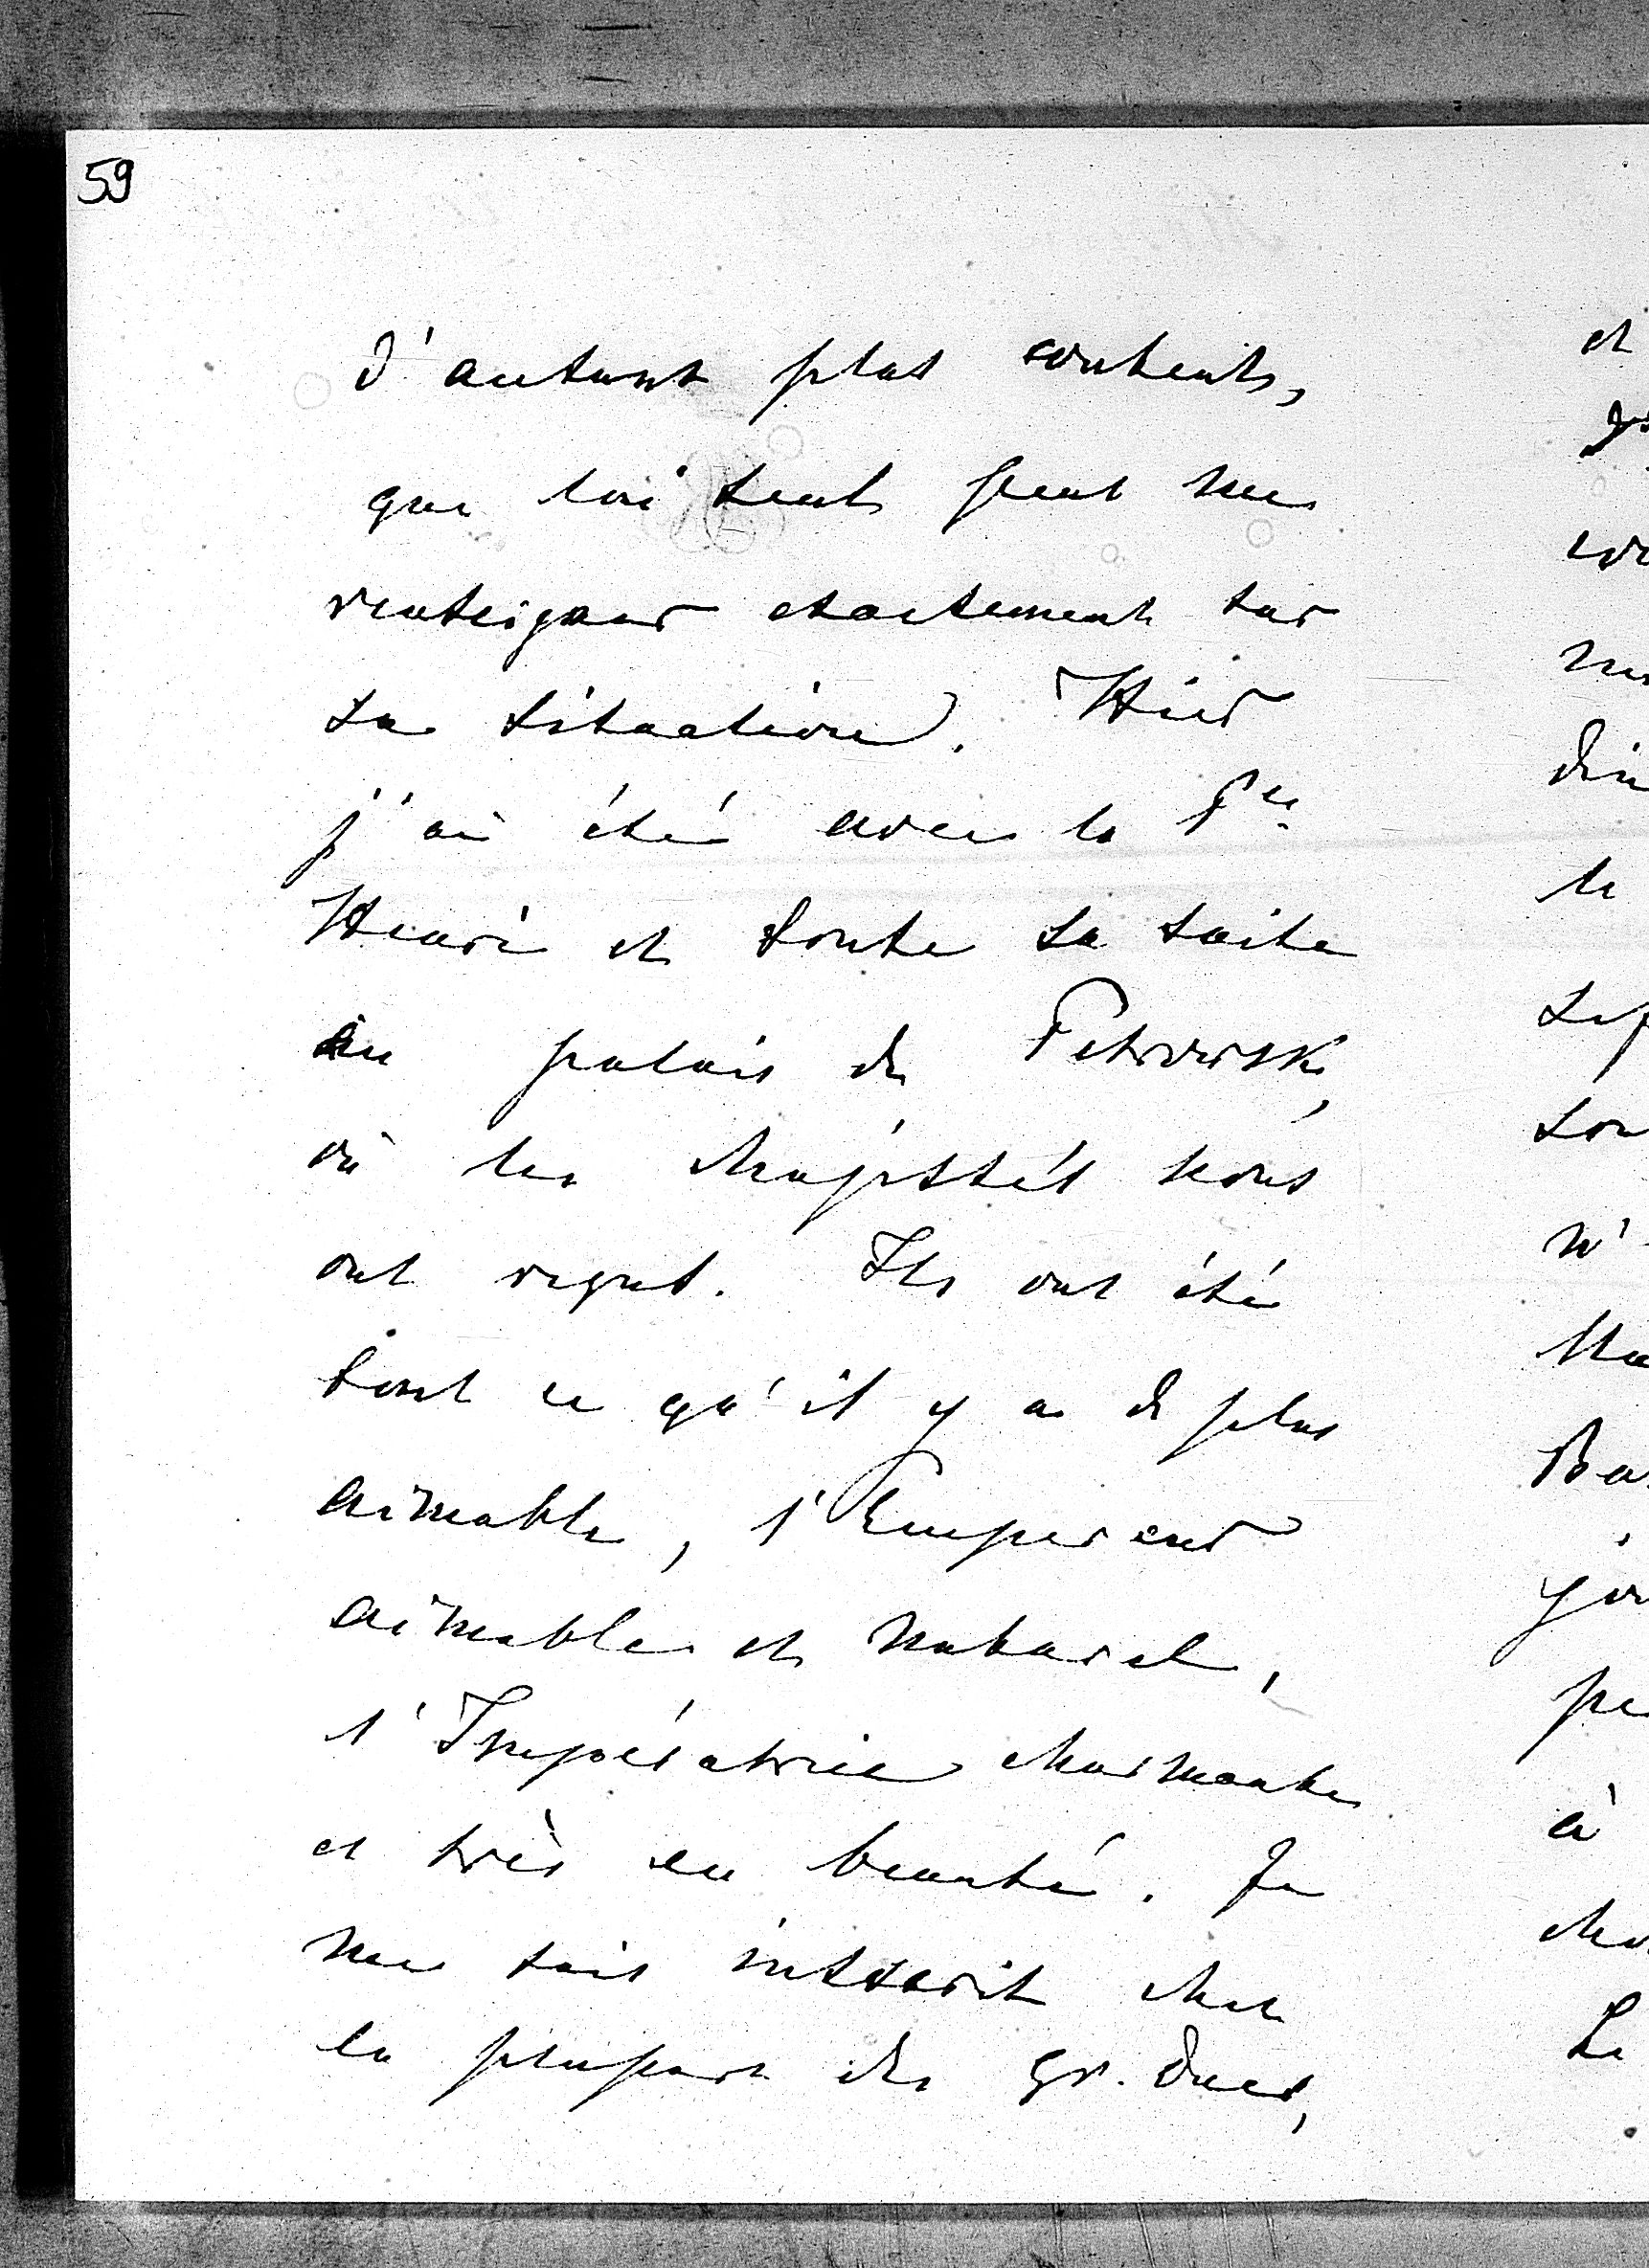 59
d'autant plus contents,
que lui seul peut me
renseigner exactement sur
sa situation. Hier
j'ai été avec le Pce
Henri et toute sa suite
au palais de Petrovsk,
où les Majestés nous
ont reçus. Ils ont été
tout ce qu'il y a de plus
aimable, l'Empereur
aimable et naturel,
l'Impératrice charmante
et très en beauté. Je
me suis inscrit chez
la plupart des gr. ducs,
et
din
le
à